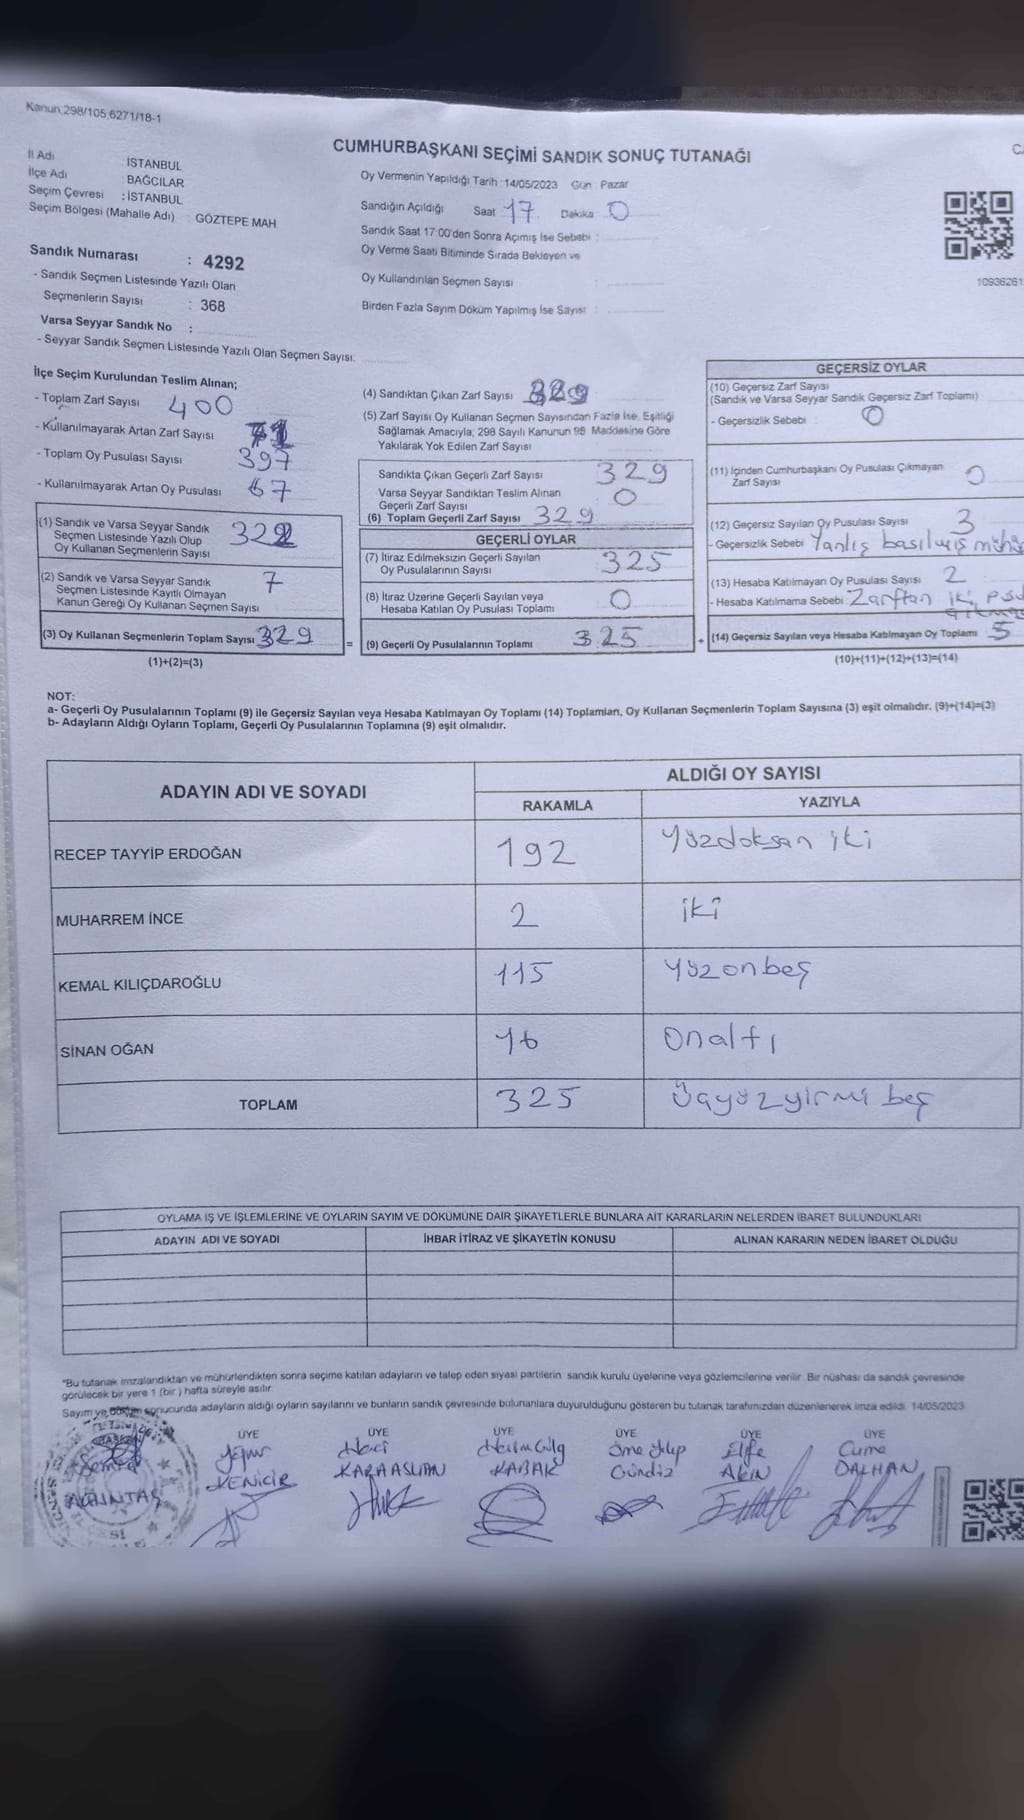 Kanun:298/105;6271/18-1
CUMHURBAŞKANI SEÇİMİ SANDIK SONUÇ TUTANAĞI
İl Adı : İSTANBUL
İlçe Adı : BAĞCILAR
Seçim Çevresi : İSTANBUL
Seçim Bölgesi (Mahalle Adı) : GÖZTEPE MAH
Oy Vermenin Yapıldığı Tarih :14/05/2023 Gün Pazar
Sandığın Açıldığı Saat 17 Dakika 0
Sandık Saat 17:00'den Sonra Açımış İse Sebebi :
Oy Verme Saati Bitiminde Sırada Bekleyen ve
Oy Kullandırılan Seçmen Sayısı :
Birden Fazla Sayım Döküm Yapılmış İse Sayısı :
10936261
Sandık Numarası : 4292
- Sandık Seçmen Listesinde Yazılı Olan
Seçmenlerin Sayısı : 368
Varsa Seyyar Sandık No :
- Seyyar Sandık Seçmen Listesinde Yazılı Olan Seçmen Sayısı:
İlçe Seçim Kurulundan Teslim Alınan;
- Toplam Zarf Sayısı 400
- Kullanılmayarak Artan Zarf Sayısı 71
- Toplam Oy Pusulası Sayısı 397
- Kullanılmayarak Artan Oy Pusulası 67
(1) Sandık ve Varsa Seyyar Sandık
Seçmen Listesinde Yazılı Olup
Oy Kullanan Seçmenlerin Sayısı 322
(2) Sandık ve Varsa Seyyar Sandık
Seçmen Listesinde Kayıtlı Olmayan
Kanun Gereği Oy Kullanan Seçmen Sayısı 7
(3) Oy Kullanan Seçmenlerin Toplam Sayısı 329
(1)+(2)=(3)
(4) Sandıktan Çıkan Zarf Sayısı 329
(5) Zarf Sayısı Oy Kullanan Seçmen Sayısından Fazla İse, Eşitliği
Sağlamak Amacıyla; 298 Sayılı Kanunun 98. Maddesine Göre
Yakılarak Yok Edilen Zarf Sayısı
Sandıkta Çıkan Geçerli Zarf Sayısı 329
Varsa Seyyar Sandıktan Teslim Alınan
Geçerli Zarf Sayısı 0
(6) Toplam Geçerli Zarf Sayısı 329
GEÇERLİ OYLAR
(7) İtiraz Edilmeksizin Geçerli Sayılan
Oy Pusulalarının Sayısı 325
(8) İtiraz Üzerine Geçerli Sayılan veya
Hesaba Katılan Oy Pusulası Toplamı 0
= (9) Geçerli Oy Pusulalarının Toplamı 325
GEÇERSİZ OYLAR
(10) Geçersiz Zarf Sayısı
(Sandık ve Varsa Seyyar Sandık Geçersiz Zarf Toplamı)
- Geçersizlik Sebebi : 0
(11) İçinden Cumhurbaşkanı Oy Pusulası Çıkmayan
Zarf Sayısı 0
(12) Geçersiz Sayılan Oy Pusulası Sayısı 3
- Geçersizlik Sebebi Yanlış basılmış mühü
(13) Hesaba Katılmayan Oy Pusulası Sayısı 2
- Hesaba Katılmama Sebebi Zarftan iki pusu
+ (14) Geçersiz Sayılan veya Hesaba Katılmayan Oy Toplamı 5
(10)+(11)+(12)+(13)=(14)
NOT:
a- Geçerli Oy Pusulalarının Toplamı (9) ile Geçersiz Sayılan veya Hesaba Katılmayan Oy Toplamı (14) Toplamları, Oy Kullanan Seçmenlerin Toplam Sayısına (3) eşit olmalıdır. (9)+(14)=(3)
b- Adayların Aldığı Oyların Toplamı, Geçerli Oy Pusulalarının Toplamına (9) eşit olmalıdır.
ADAYIN ADI VE SOYADI ALDIĞI OY SAYISI
RAKAMLA YAZIYLA
RECEP TAYYİP ERDOĞAN 192 yüzdoksan iki
MUHARREM İNCE 2 iki
KEMAL KILIÇDAROĞLU 115 yüzonbeş
SİNAN OĞAN 16 onaltı
TOPLAM 325 Üçyüzyirmi beş
OYLAMA İŞ VE İŞLEMLERİNE VE OYLARIN SAYIM VE DÖKÜMÜNE DAİR ŞİKAYETLERLE BUNLARA AİT KARARLARIN NELERDEN İBARET BULUNDUKLARI
ADAYIN ADI VE SOYADI İHBAR İTİRAZ VE ŞİKAYETİN KONUSU ALINAN KARARIN NEDEN İBARET OLDUĞU
"Bu tutanak imzalandıktan ve mühürlendikten sonra seçime katılan adayların ve talep eden siyasi partilerin sandık kurulu üyelerine veya gözlemcilerine verilir. Bir nüshası da sandık çevresinde
görülecek bir yere 1 (bir ) hafta süreyle asılır.
Sayım ve döküm sonucunda adayların aldığı oyların sayılarını ve bunların sandık çevresinde bulunanlara duyurulduğunu gösteren bu tutanak tarafımızdan düzenlenerek imza edildi. 14/05/2023
ÜYE ÜYE ÜYE ÜYE ÜYE ÜYE
Haci Elfe Cuma
YENİCİR KARAASLAN KABAK Gündüz Akın DALHAN